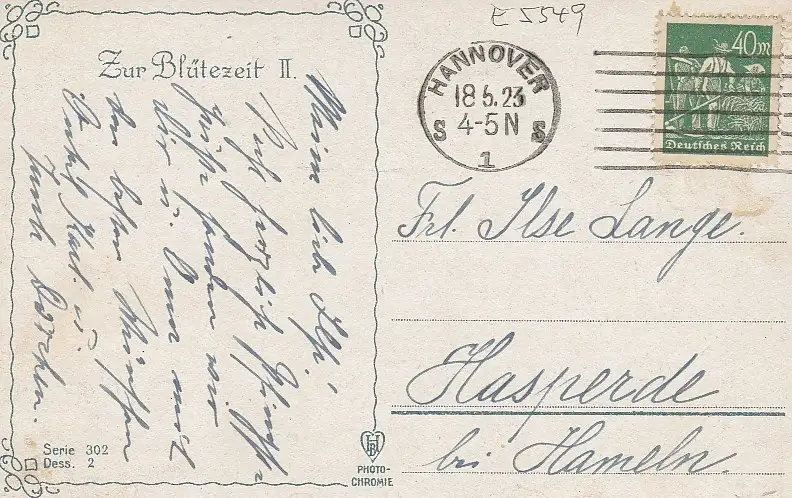 E 5549
Zur Blütezeit II.
Meine liebe Ilse!
Recht herzliche Pfingst
grüße senden wir
Dir u. Oma mit
den besten Wünschen
Onkel Karl u.
Tante Dorchen.
Serie 302
Dess. 2
HB
PHOTO-
CHROMIE
HANNOVER
18 5.23
4-5 N
S S
1
40 m
Deutsches Reich
Frl. Ilse Lange.
Hasperde
bei Hameln.